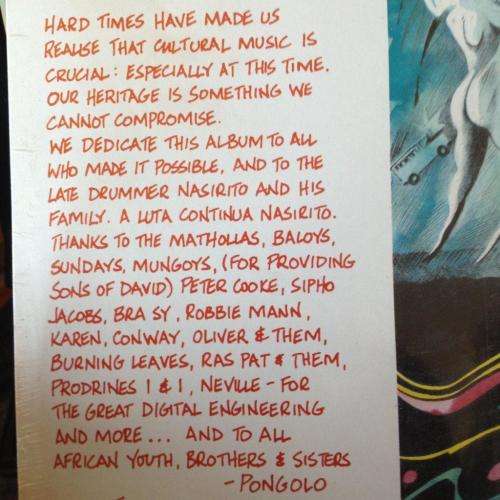 HARD TIMES HAVE MADE US
REALISE THAT CULTURAL MUSIC IS
CRUCIAL: ESPECIALLY AT THIS TIME.
OUR HERITAGE IS SOMETHING WE
CANNOT COMPROMISE.
WE DEDICATE THIS ALBUM TO ALL
WHO MADE IT POSSIBLE, AND TO THE
LATE DRUMMER NASIRITO AND HIS
FAMILY. A LUTA CONTINUA NASIRITO.
THANKS TO THE MATHOLLAS, BALOYS,
SUNDAYS, MUNGOYS, (FOR PROVIDING
SONS OF DAVID) PETER COOKE, SIPHO
JACOBS, BRA SY, ROBBIE MANN,
KAREN, CONWAY, OLIVER & THEM,
BURNING LEAVES, RAS PAT & THEM,
PRODRINES I & I, NEVILLE - FOR
THE GREAT DIGITAL ENGINEERING
AND MORE... AND TO ALL
AFRICAN YOUTH, BROTHERS & SISTERS
- PONGOLO